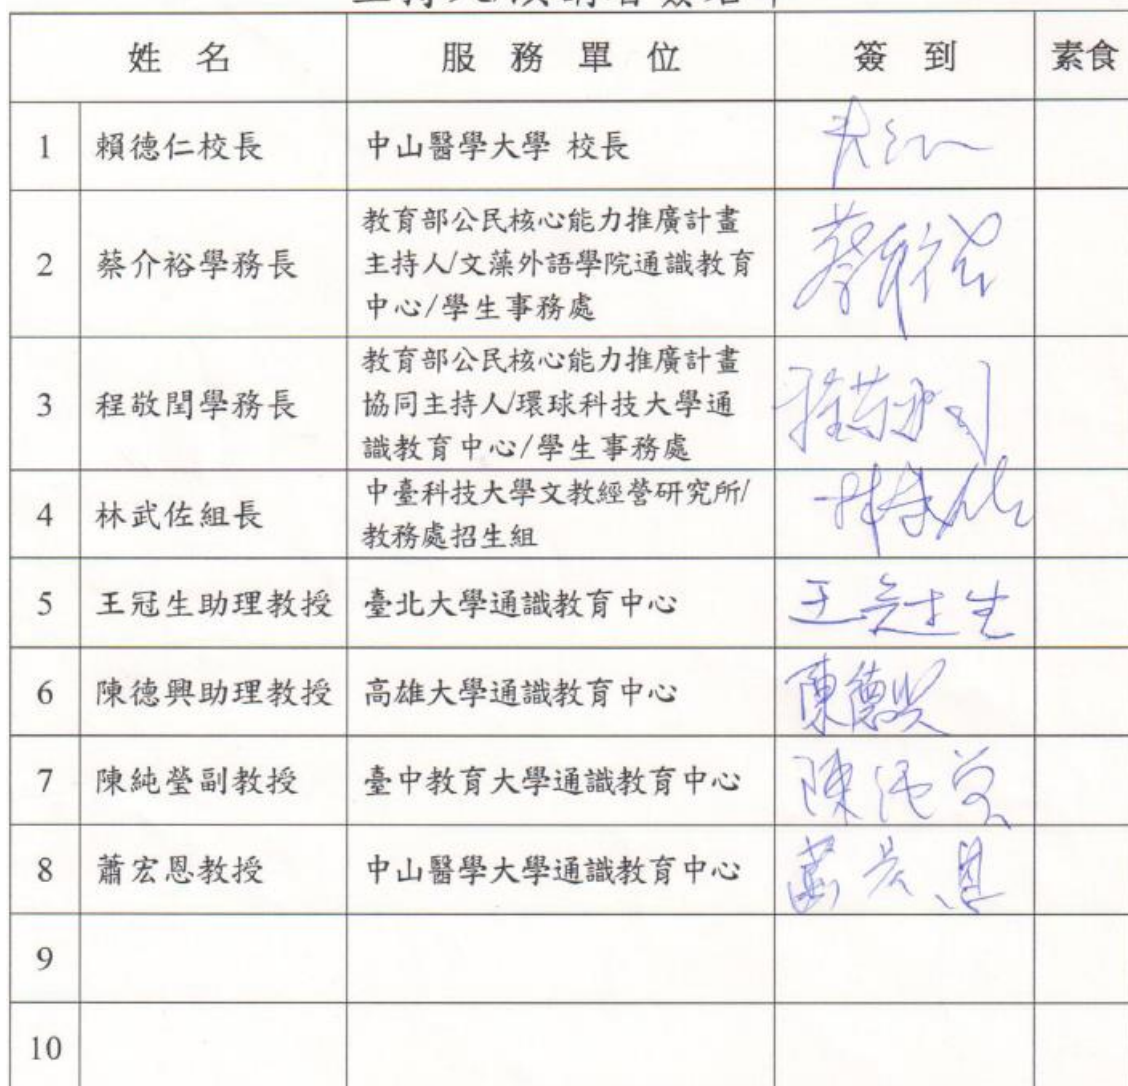 姓名 服務單位 簽到 素食
1 賴德仁校長 中山醫學大學 校長
2 蔡介裕學務長 教育部公民核心能力推廣計畫
主持人/文藻外語學院通識教育
中心/學生事務處 蔡介裕
3 程敬閏學務長 教育部公民核心能力推廣計畫
協同主持人/環球科技大學通
識教育中心/學生事務處 程敬閏
4 林武佐組長 中臺科技大學文教經營研究所/
教務處招生組 林武佐
5 王冠生助理教授 臺北大學通識教育中心 王冠生
6 陳德興助理教授 高雄大學通識教育中心 陳德興
7 陳純瑩副教授 臺中教育大學通識教育中心 陳純瑩
8 蕭宏恩教授 中山醫學大學通識教育中心 蕭宏恩
9
10